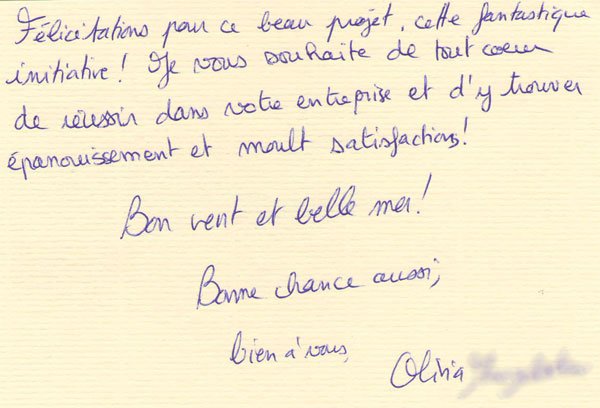 Félicitations pour ce beau projet, cette fantastique
initiative ! Je vous souhaite de tout coeur
de réussir dans votre entreprise et d'y trouver
épanouissement et moult satisfactions !
Bon vent et belle mer !
Bonne chance aussi,
bien à vous,
Olivia